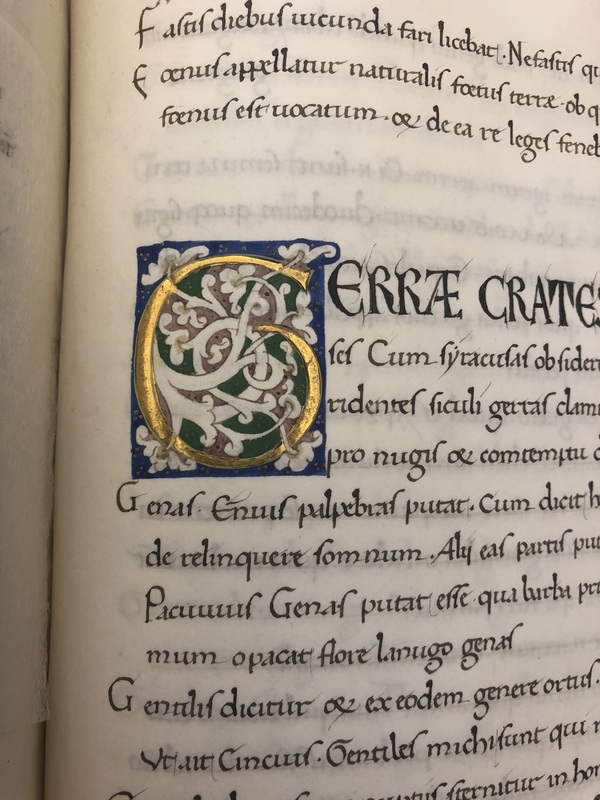 Fastis diebus iucunda fari licebat. Nefastis qu
Foenus appellatur naturalis foetus terræ. ob q
foenus est uocatum. & de ea re leges feneb
GERRÆ CRATES
ses Cum syracusas obsider
ridentes siculi gerras clam
pro nugis & comtemptu
Genas. Enius palpebras putat. Cum dicit h
de relinquere somnum. Alij eas partis put
Pacuuius Genas putat esse qua barba pr
mum opacat flore lanugo genas
Gentilis dicitur & ex eodem genere ortus.
Vt ait Cincius. Gentiles michi sunt qui
sternitur in hon